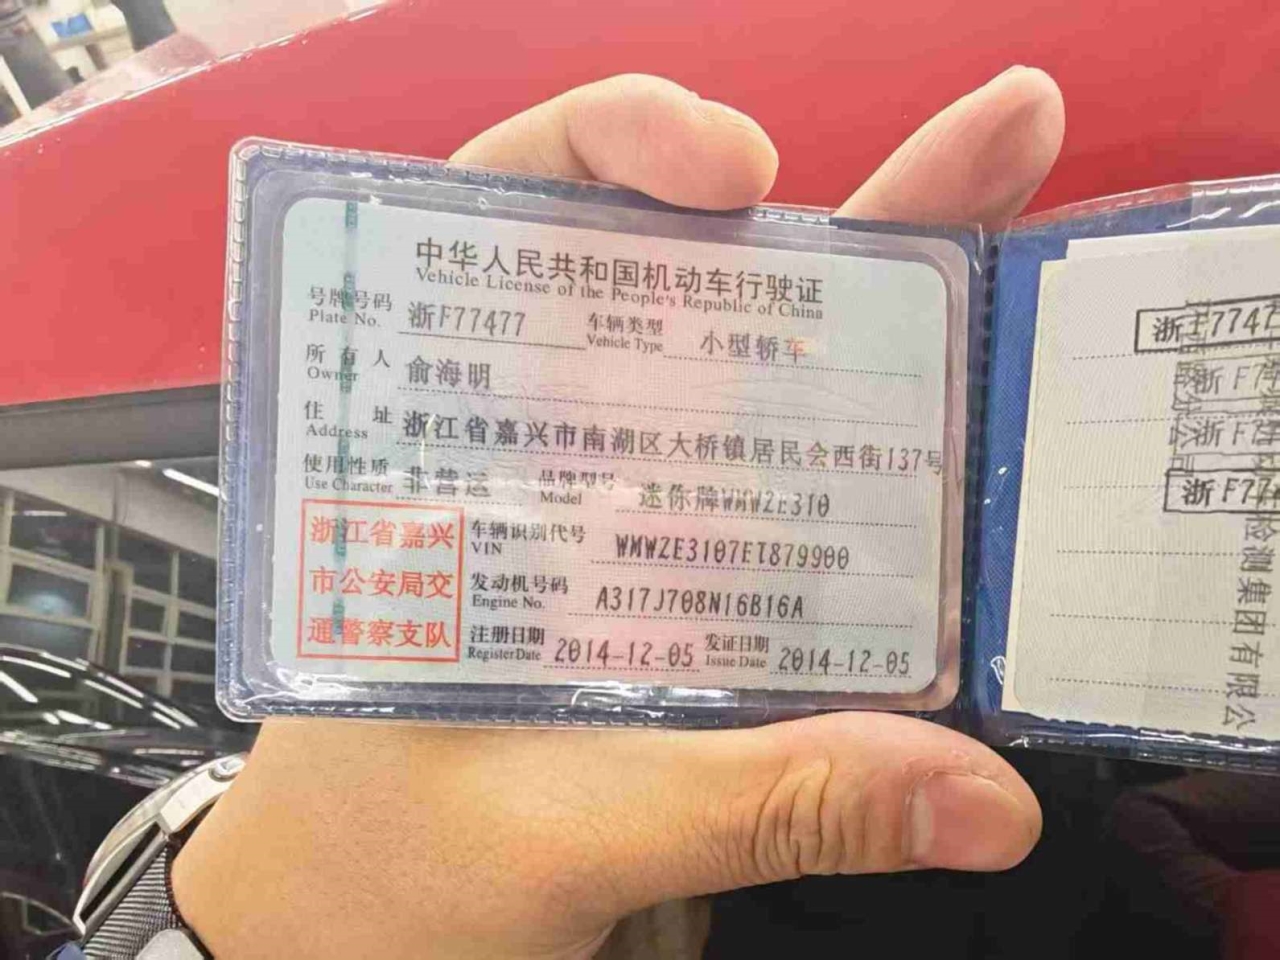 中华人民共和国机动车行驶证
Vehicle License of the People's Republic of China
号牌号码 浙F77477 车辆类型 小型轿车
Plate No. Vehicle Type
所有人 俞海明
Owner
住址 浙江省嘉兴市南湖区大桥镇居民会西街137号
Address
使用性质 非营运 品牌型号 迷你牌WMWZE310
Use Character Model
浙江省嘉兴
市公安局交
通警察支队
车辆识别代号 WMWZE3107ET879900
VIN
发动机号码 A317J708N16B16A
Engine No.
注册日期 2014-12-05 发证日期 2014-12-05
Register Date Issue Date
浙F7747
浙F7
浙F7
浙F77
检测集团有限公